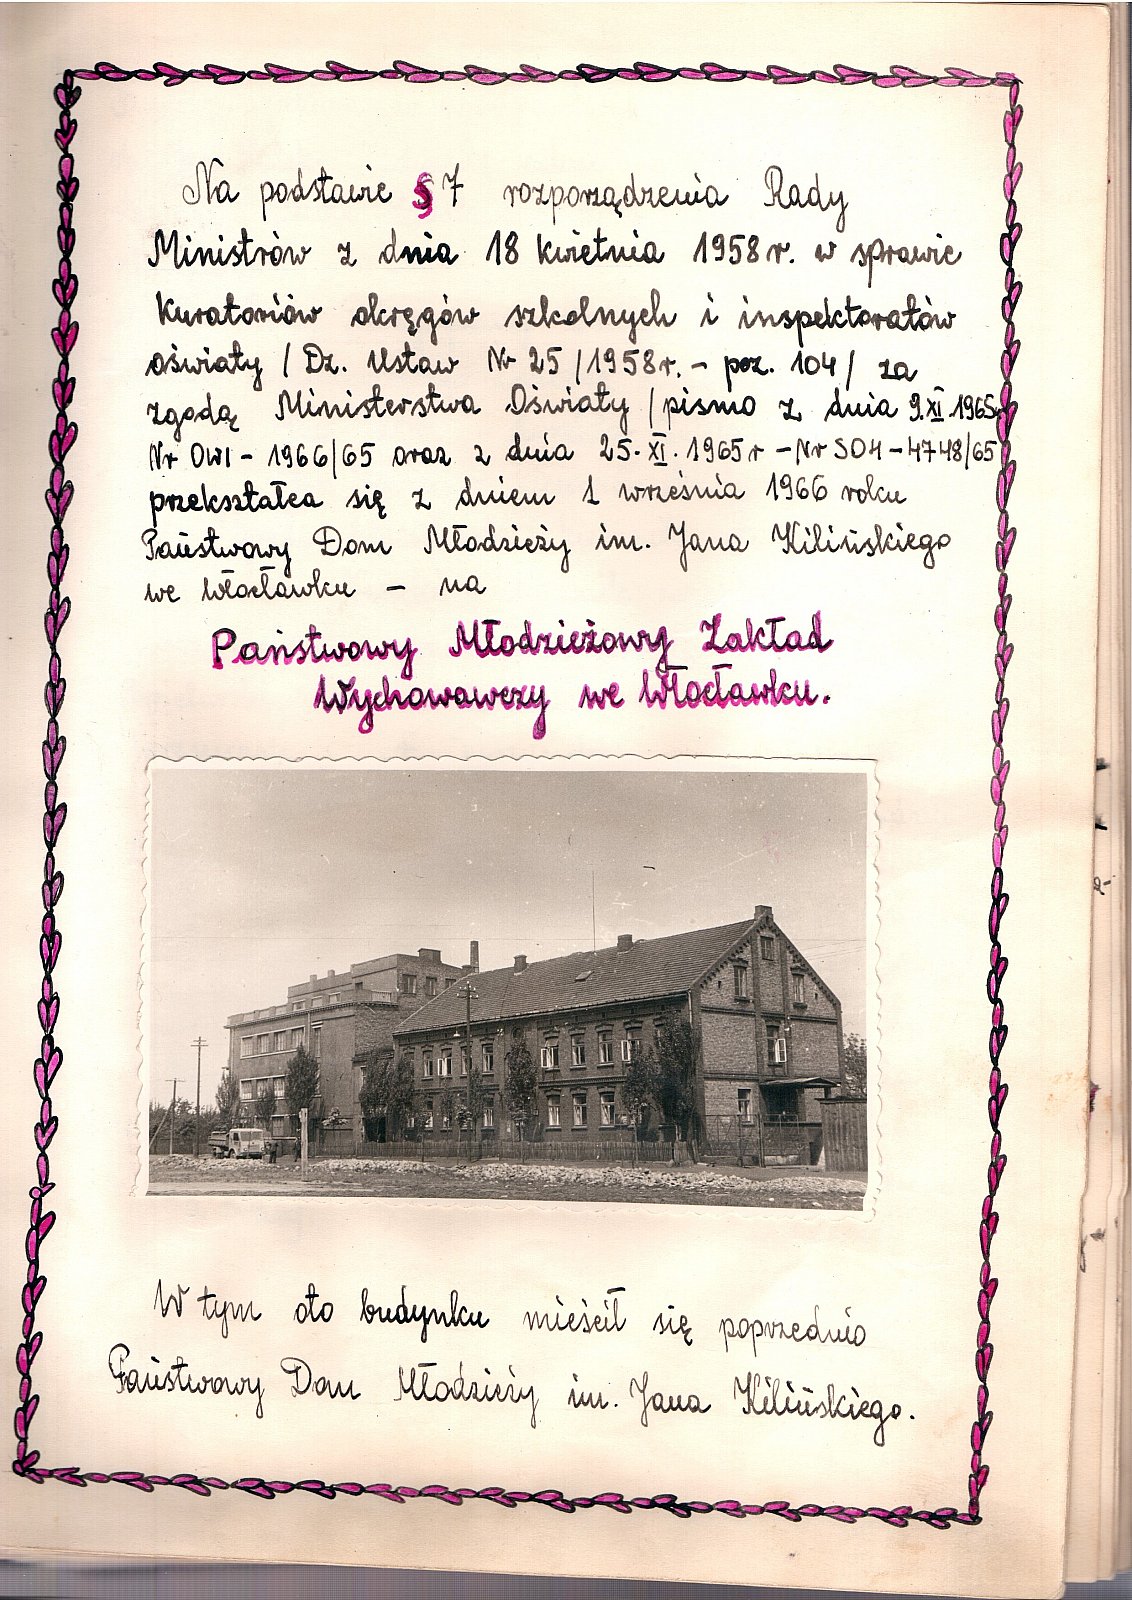 Na podstawie § 7 rozporządzenia Rady
Ministrów z dnia 18 kwietnia 1958 r. w sprawie
Kuratoriów okręgów szkolnych i inspektoratów
oświaty / Dz. Ustaw Nr 25 /1958 r. - poz. 104 / za
zgodą Ministerstwa Oświaty / pismo z dnia 9.XI.1965r
Nr OW1 - 1966/65 oraz z dnia 25.XI.1965 r - Nr SO4 - 4748/65
przekształca się z dniem 1 września 1966 roku
Państwowy Dom Młodzieży im. Jana Kilińskiego
we Włocławku - na
Państwowy Młodzieżowy Zakład
Wychowawczy we Włocławku.
W tym oto budynku mieścił się poprzednio
Państwowy Dom Młodzieży im. Jana Kilińskiego.